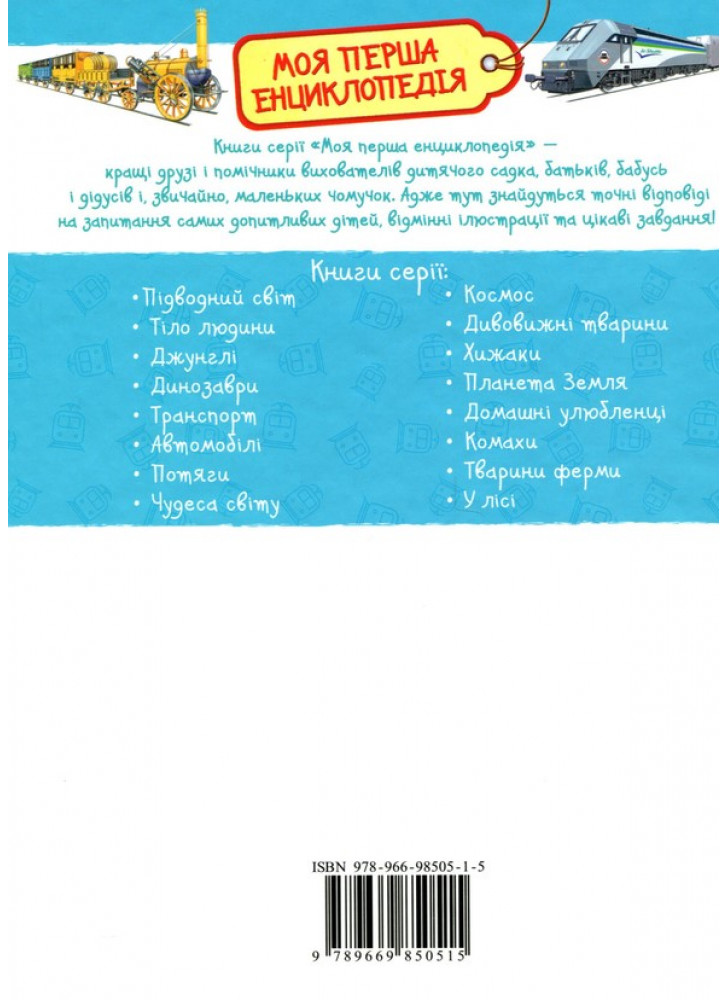 МОЯ ПЕРША
ЕНЦИКЛОПЕДІЯ
Книги серії «Моя перша енциклопедія» —
кращі друзі і помічники вихователів дитячого садка, батьків, бабусь
і дідусів і, звичайно, маленьких чомучок. Адже тут знайдуться точні відповіді
на запитання самих допитливих дітей, відмінні ілюстрації та цікаві завдання!
Книги серії:
• Підводний світ
• Тіло людини
• Джунглі
• Динозаври
• Транспорт
• Автомобілі
• Потяги
• Чудеса світу
• Космос
• Дивовижні тварини
• Хижаки
• Планета Земля
• Домашні улюбленці
• Комахи
• Тварини ферми
• У лісі
ISBN 978-966-98505-1-5
9 789669 850515